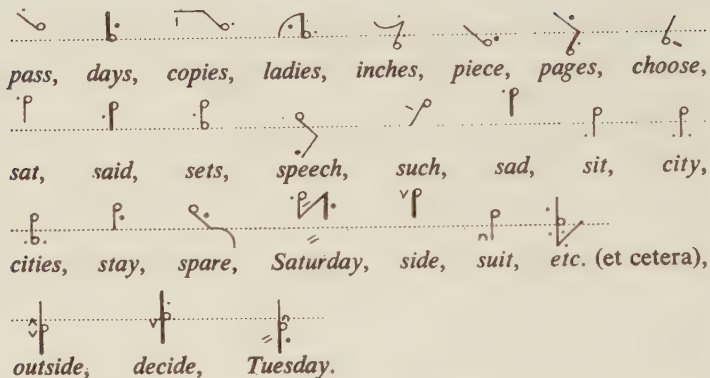 pass, days, copies, ladies, inches, piece, pages, choose,
sat, said, sets, speech, such, sad, sit, city,
cities, stay, spare, Saturday, side, suit, etc. (et cetera),
outside, decide, Tuesday.